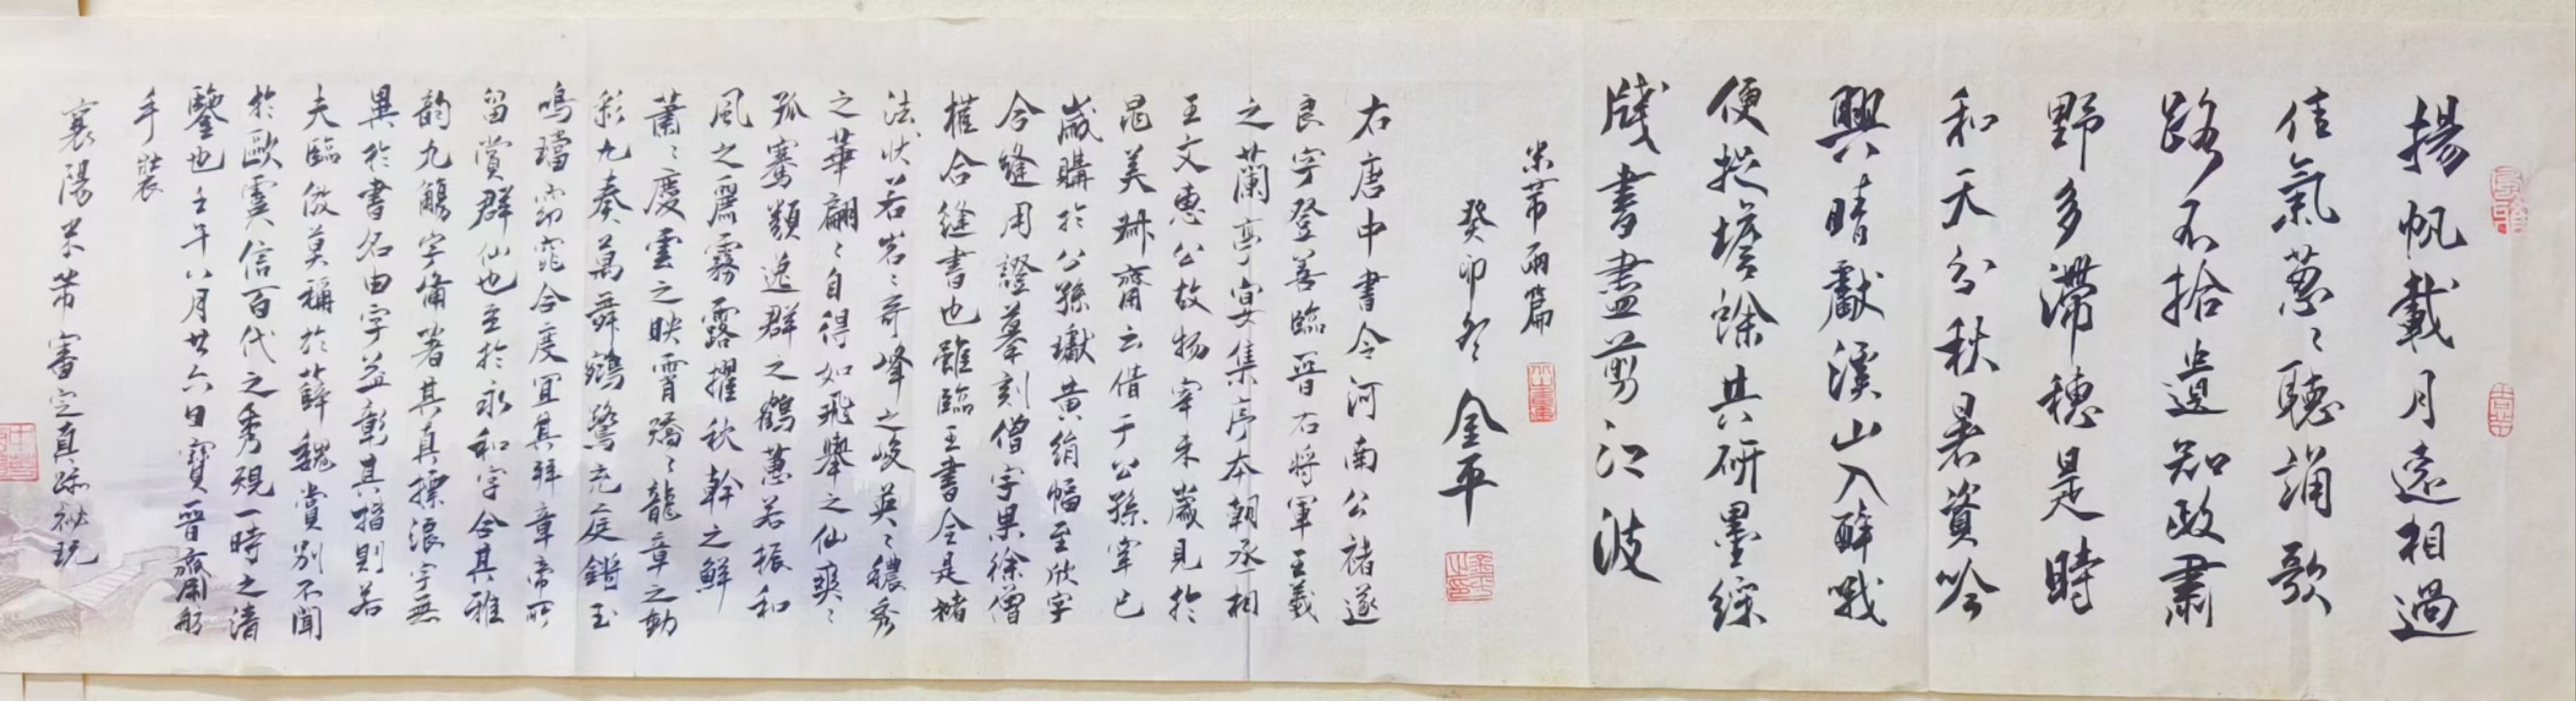 揚帆載月遠相過
佳氣蔥〻聽誦歌
路不拾遺知政肅
野多滯穗是時
和天分秋暑資吟
興晴獻溪山入醉哦
便捉蟾蜍共研墨綵
牋書盡剪江波
米芾兩篇
癸卯冬 金平
右唐中書令河南公褚遂
良字登善臨晉右將軍王羲
之蘭亭宴集序本朝丞相
王文惠公故物辛未歲見於
晁美叔齋云借于公孫辛巳
歲購於公孫瓛黃絹幅至欣字
合縫用證摹刻僧字果徐僧
權合縫書也雖臨王書全是褚
法狀若岩〻奇峰之峻英〻穠秀
之華翩〻自得如飛舉之仙爽〻
孤騫類逸群之鶴蕙若振和
風之麗霧露擢秋幹之鮮
蕭〻慶雲之映霄矯〻龍章之動
彩九奏萬舞鵷鷺充庭鏘玉
鳴璫窈窕合度宜其拜章帝所
留賞群仙也至於永和字合其雅
韵九觴字備著其真摽浪字無
異於書名由字益彰其楷則若
夫臨倣莫稱於薛魏賞別不聞
於歐虞信百代之秀規一時之清
鑒也壬午八月廿六日寶晉齋舫
手裝
襄陽米芾審定真跡秘玩